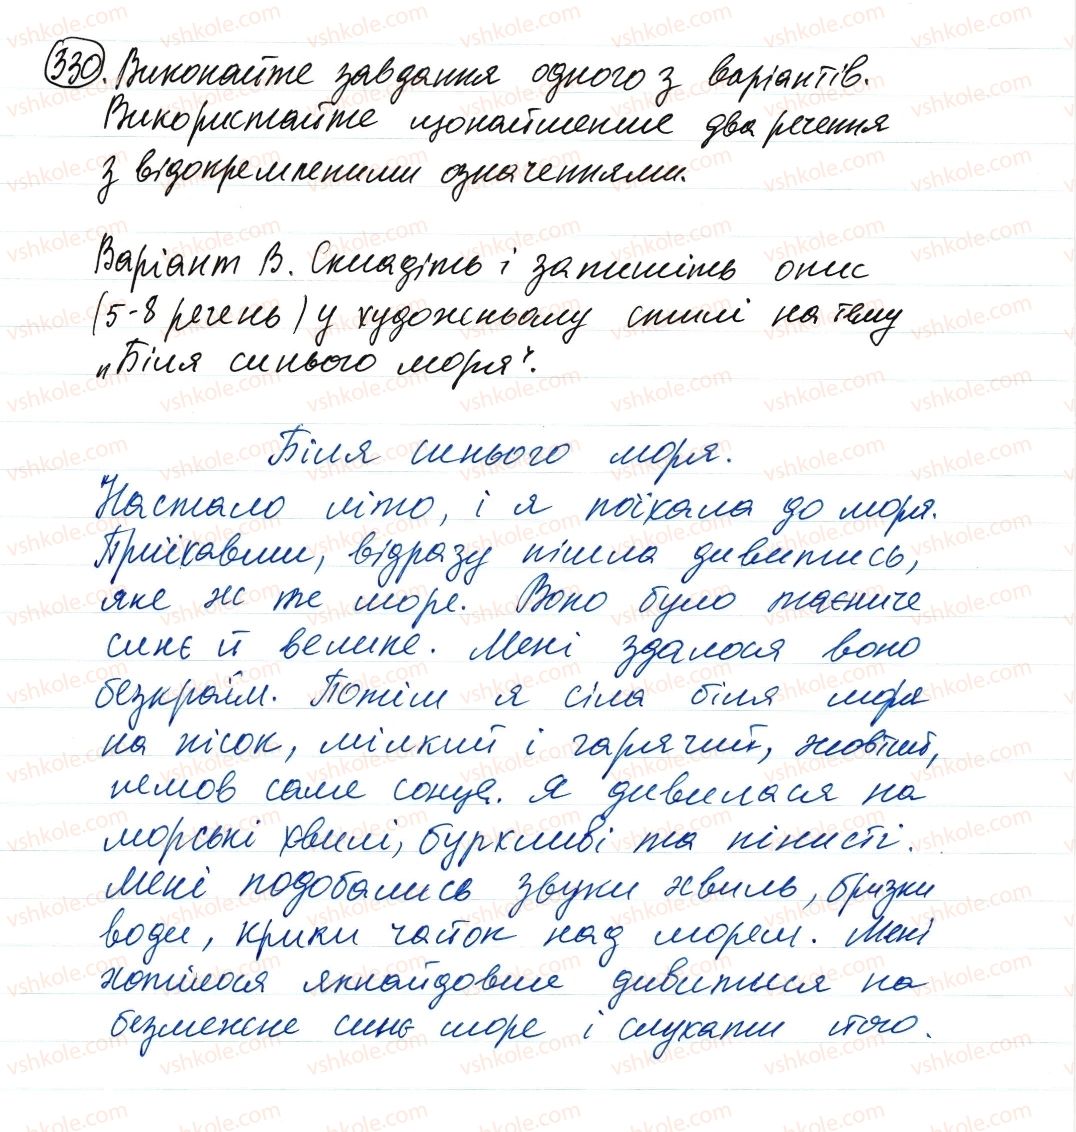 330. Виконайте завдання одного з варіантів.
Використайте щонайменше два речення
з відокремленими означеннями.
Варіант В. Складіть і запишіть опис
(5-8 речень) у художньому стилі на тему
„Біля синього моря".
Біля синього моря.
Настало літо, і я поїхала до моря.
Приїхавши, відразу пішла дивитись,
яке ж те море. Воно було таєниче
синє й велике. Мені здалося воно
безкраїм. Потім я сіла біля моря
на пісок, мілкий і гарячий, жовтий,
немов саме сонце. Я дивилася на
морські хвилі, буркливі та пінисті.
Мені подобались звуки хвиль, бризки
води, крики чайок над морем. Мені
хотілося якнайдовше дивитися на
безмежне синє море і слухати його.